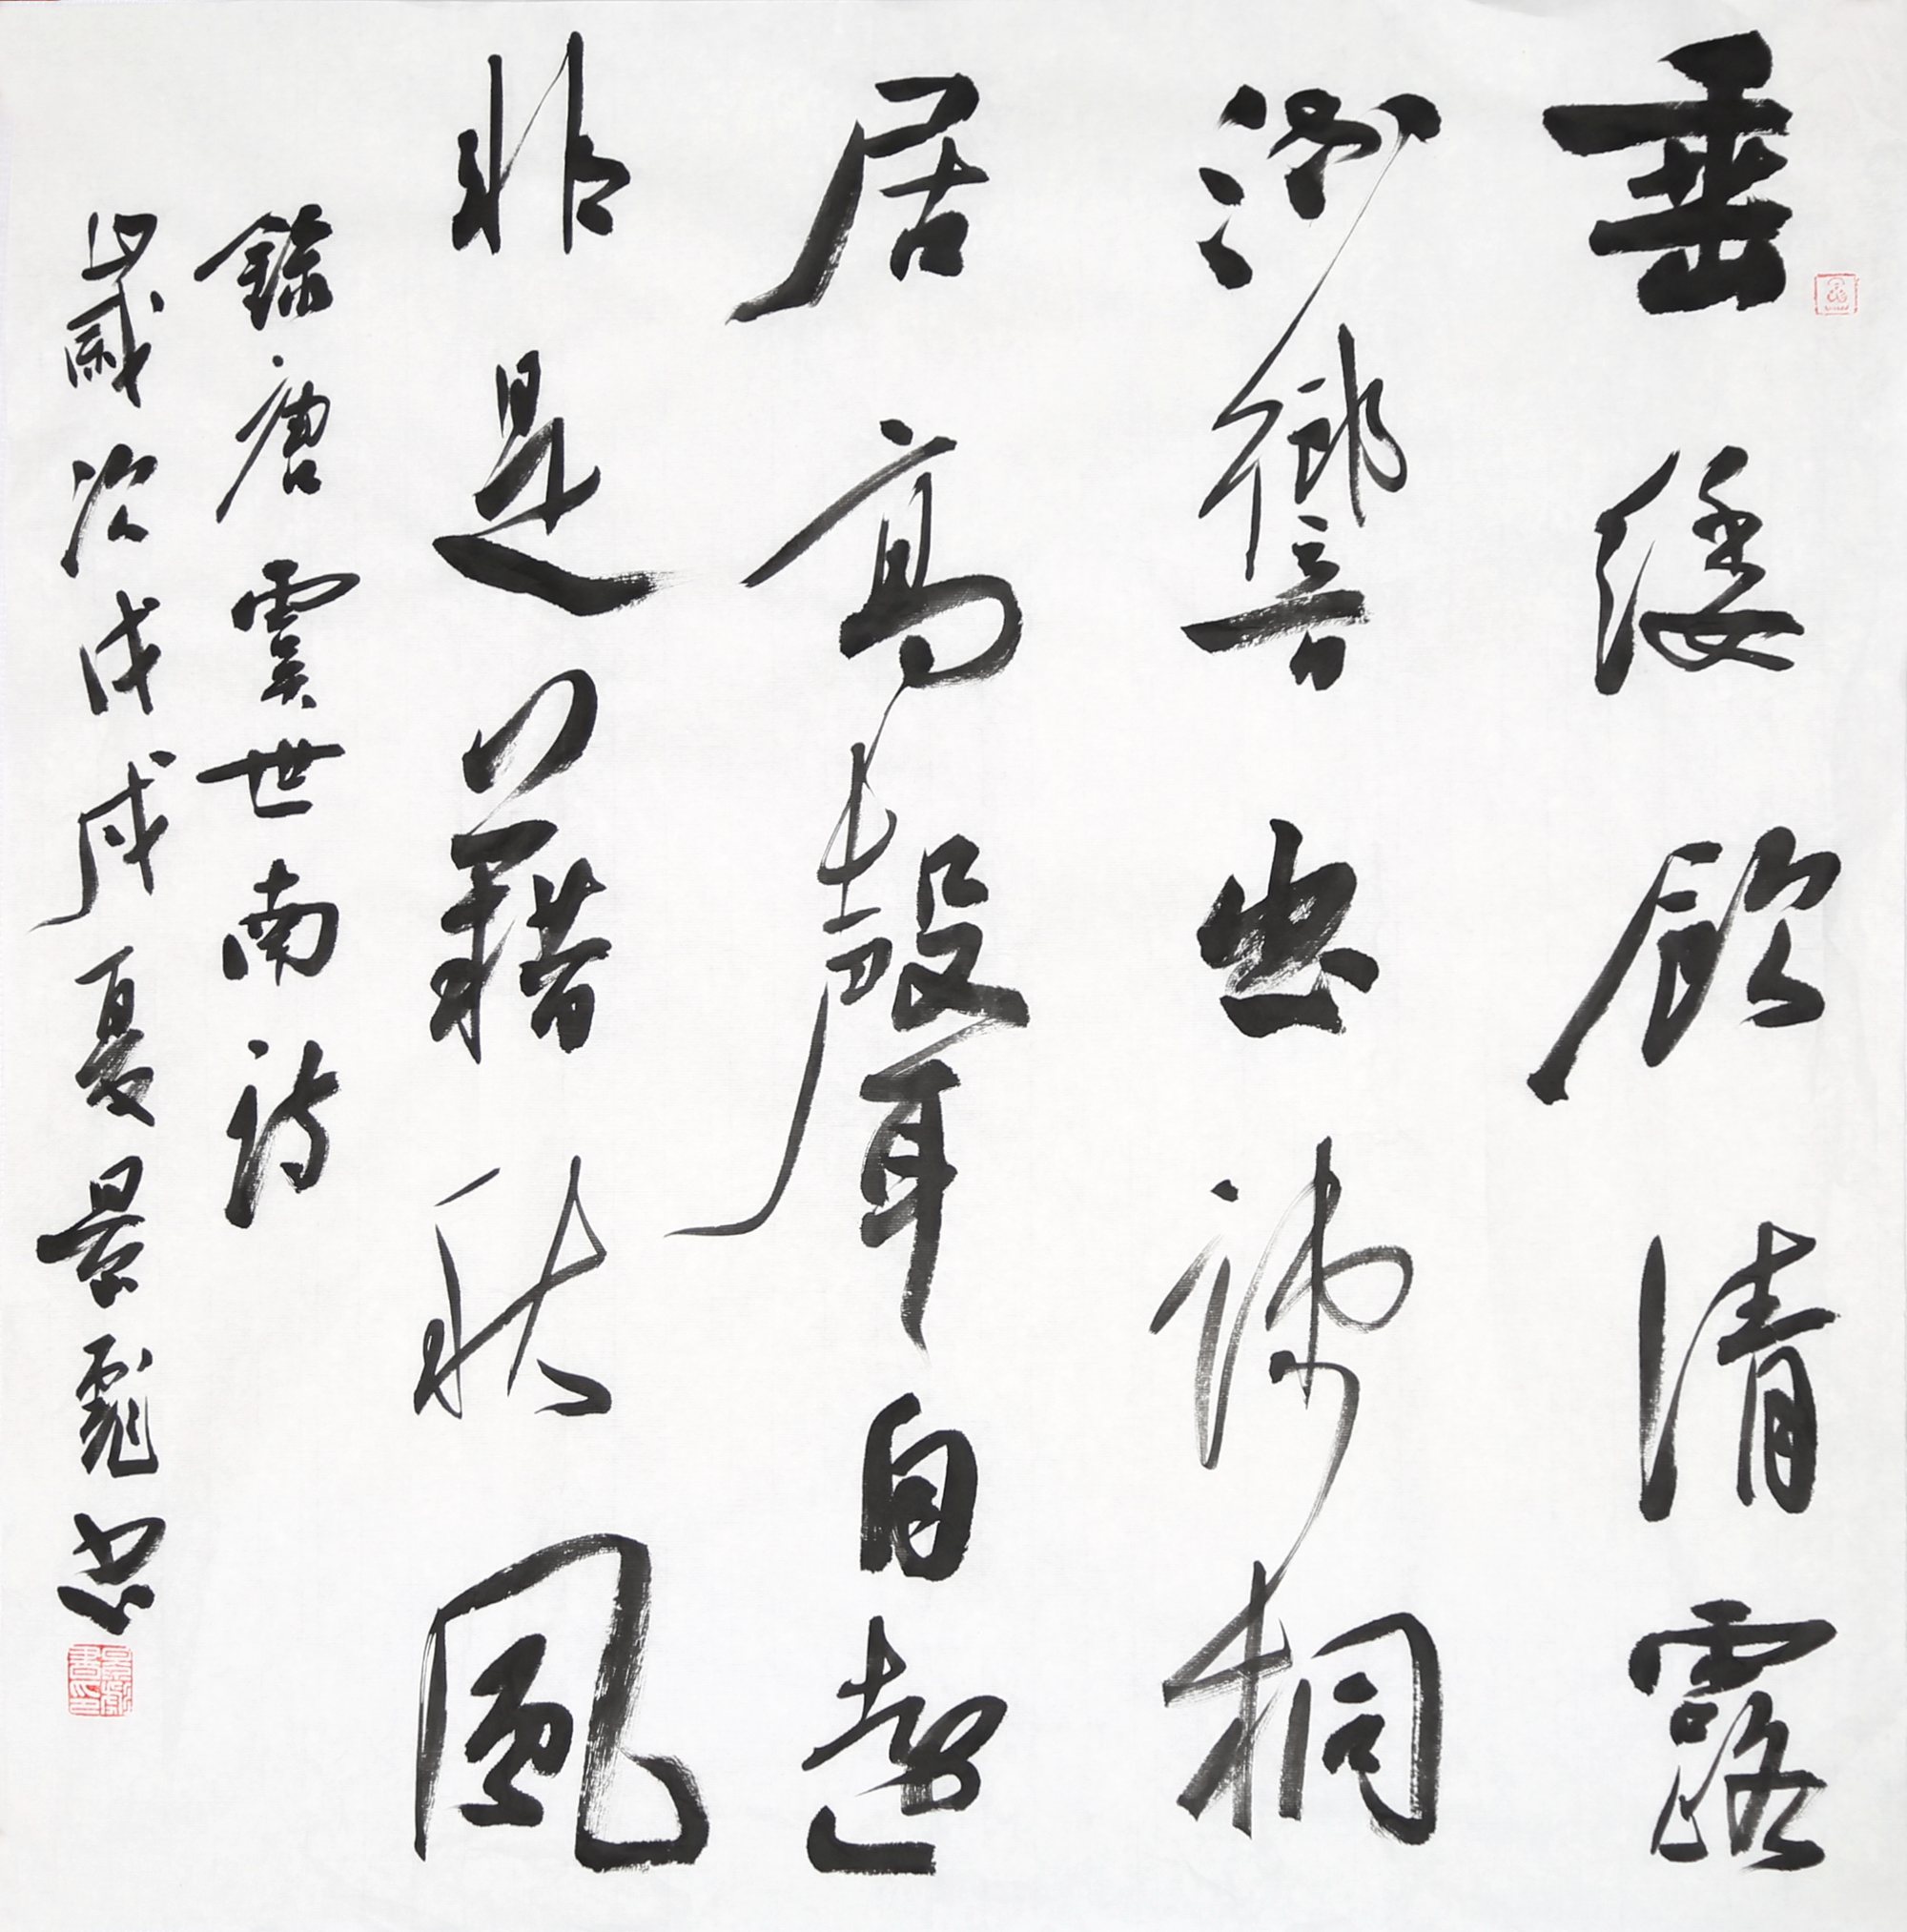 垂緌飲清露
流響出疎桐
居高聲自遠
非是藉秋風
錄唐虞世南詩
歲次戊戌夏景書